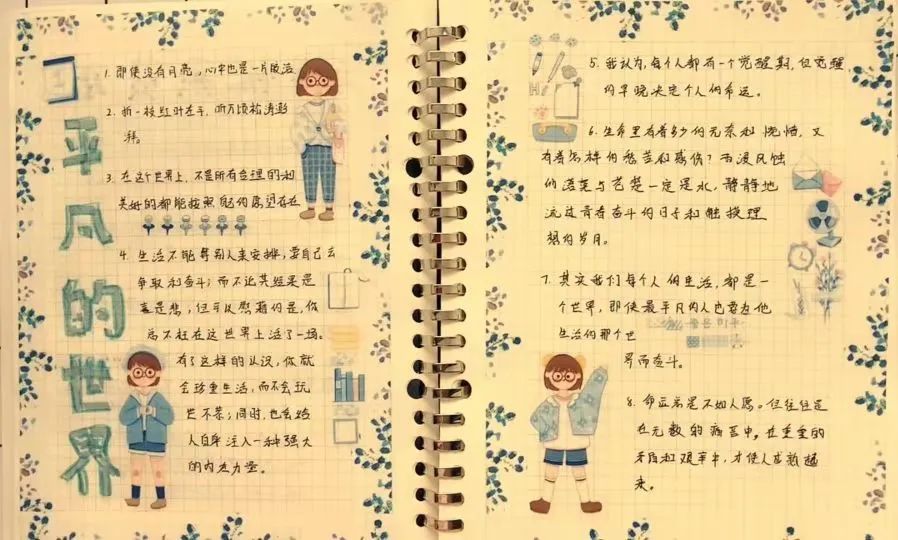 平凡的世界
1. 即使没有月亮,心中也是一片皎洁
2. 折一枝红叶在手,听万顷松涛澎
湃。
3. 在这个世界上,不是所有合理的和
美好的都能按照自己的愿望存在
4. 生活不能等别人来安排,要自己去
争取和奋斗;而不论其结果是
喜是悲,但可以慰藉的是,你
总不枉在这世界上活了一场。
有了这样的认识,你就
会珍重生活,而不会玩
世不恭;同时,也会给
人自身注入一种强大
的内在力量。
5. 我认为,每个人都有一个觉醒期,但觉醒
的早晚决定个人的命运。
6. 生命里有着多少的无奈和惋惜,又
有着怎样的愁苦和感伤?雨浸风蚀
的落寞与苍楚一定是水,静静地
流过青春奋斗的日子和触摸理
想的岁月。
7. 其实我们每个人的生活,都是一
个世界,即使最平凡的人也要为他
生活的那个世
界而奋斗。
8. 命运总是不如人愿。但往往是
在无数的痛苦中,在重重的
矛盾和艰辛中,才使人成熟起
来。